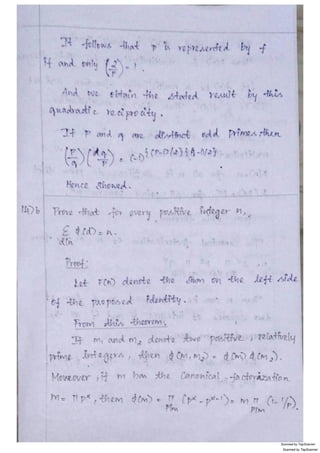 It follows that P is represented by f
if and only (2/P) = 1.
And we obtain the stated result by this
quadratic reciprocity.
If P and q are distinct odd primes then
(P/q) (q/P) = (-1)^{(P-1)/2}{(q-1)/2}
Hence showed.
14)b Prove that for every positive integer n,
Σ φ(d) = n.
d|n
Proof:
Let F(n) denote the sum on the left side
of the proposed identity.
From this theorem,
If m, and m2 denote two positive, relatively
prime integers, then φ(m1 m2) = φ(m1) φ(m2).
Moreover, if m has the canonical factorization
m = Π p^α, then φ(m) = Π (p^α - p^α-1) = m Π (1-1/p).
P|m P|m
Scanned by TapScanner
Scanned by TapScanner